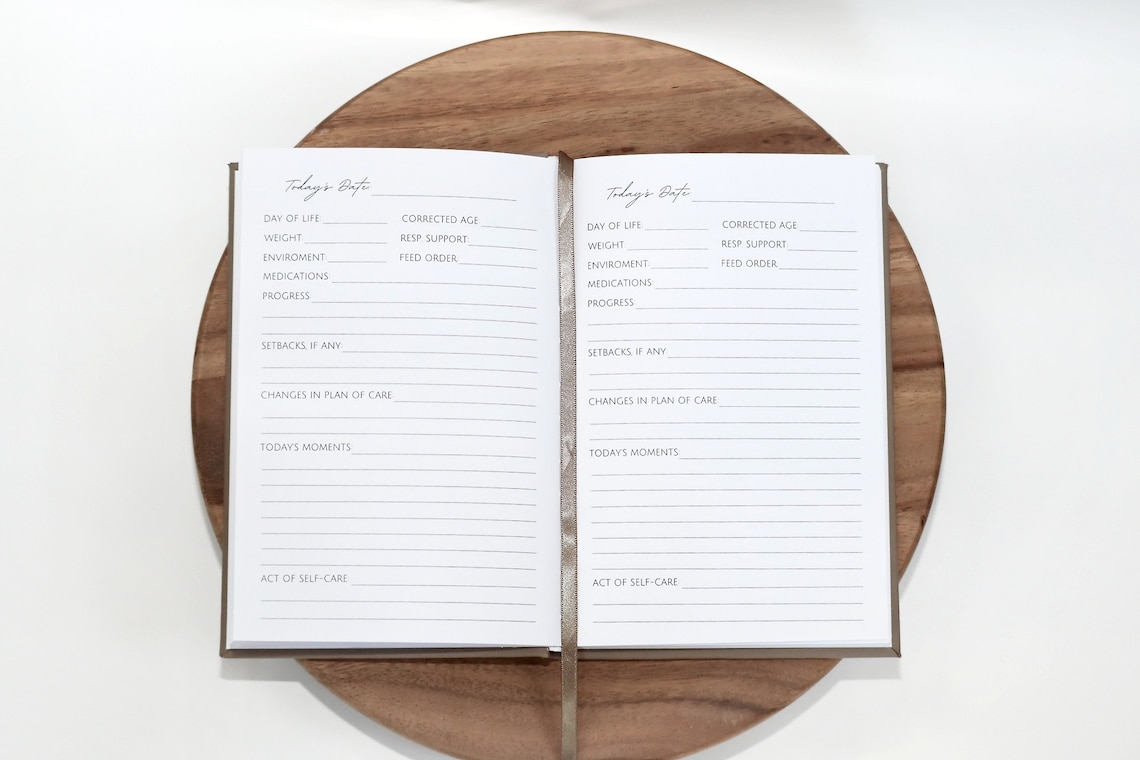 Today's Date:
DAY OF LIFE: CORRECTED AGE:
WEIGHT: RESP. SUPPORT:
ENVIROMENT: FEED ORDER:
MEDICATIONS:
PROGRESS:
SETBACKS, IF ANY:
CHANGES IN PLAN OF CARE:
TODAY'S MOMENTS:
ACT OF SELF-CARE:
Today's Date:
DAY OF LIFE: CORRECTED AGE:
WEIGHT: RESP. SUPPORT:
ENVIROMENT: FEED ORDER:
MEDICATIONS:
PROGRESS:
SETBACKS, IF ANY:
CHANGES IN PLAN OF CARE:
TODAY'S MOMENTS:
ACT OF SELF-CARE: